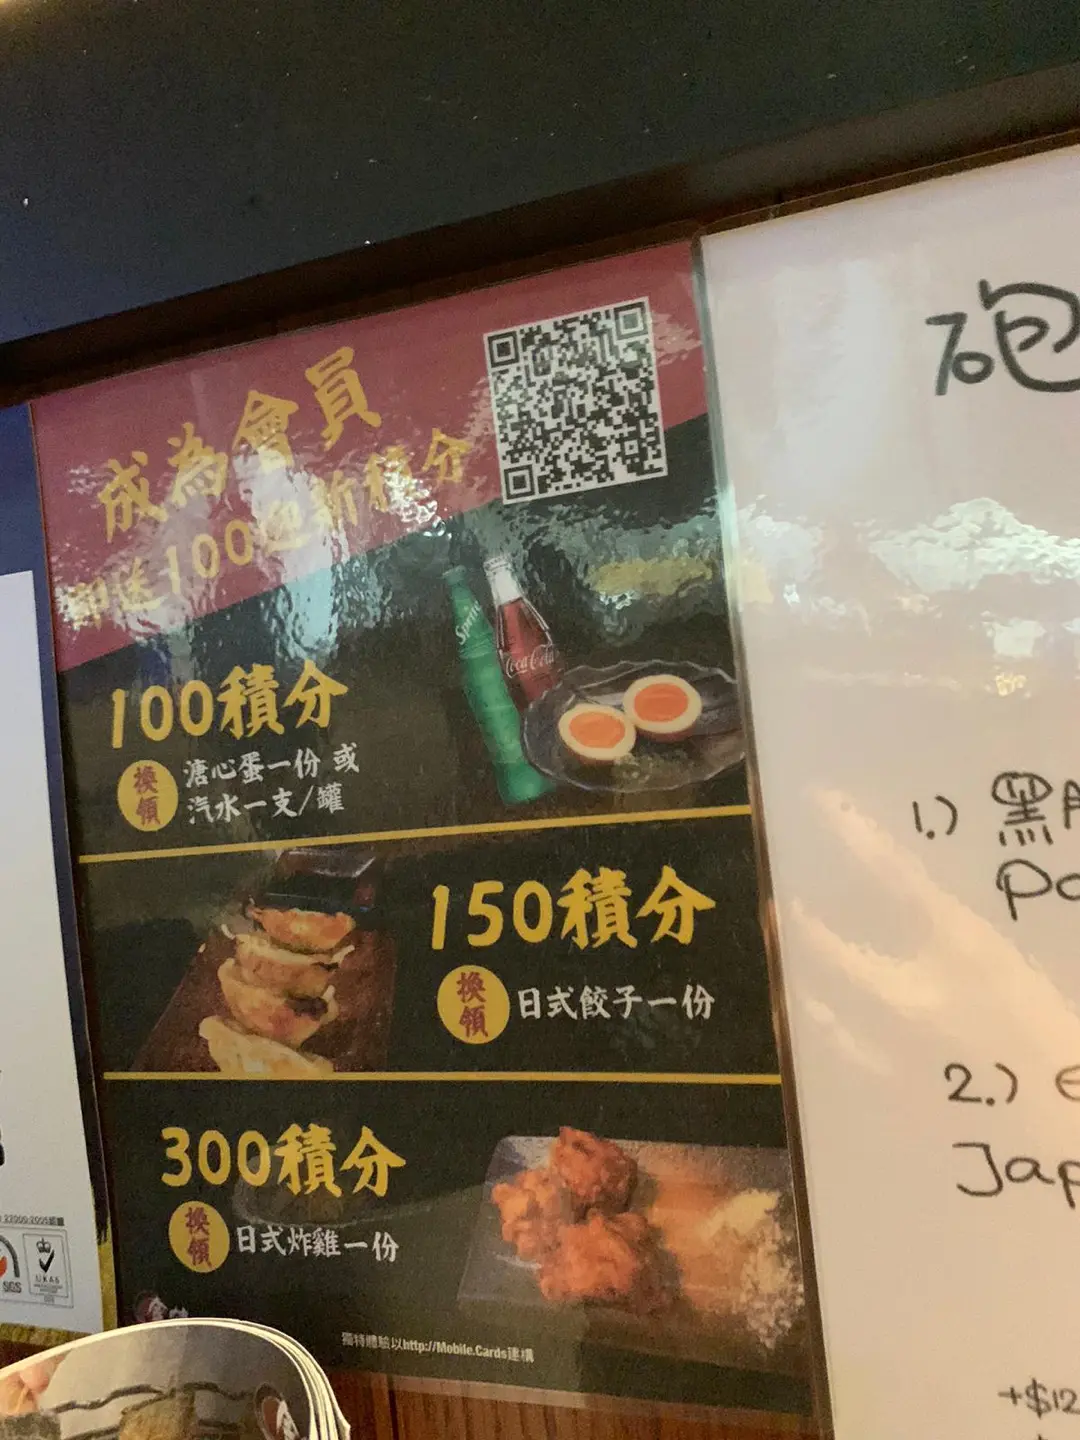 成為會員
即送100迎新積分
Sprite
Coca-Cola
100積分
換領
溏心蛋一份 或
汽水一支/罐
150積分
換領
日式餃子一份
300積分
換領
日式炸雞一份
獨特體驗以http://Mobile.Cards建構
砲
1.) 黑
2.)
Jap
+$12
22000:2005
SGS
UKAS